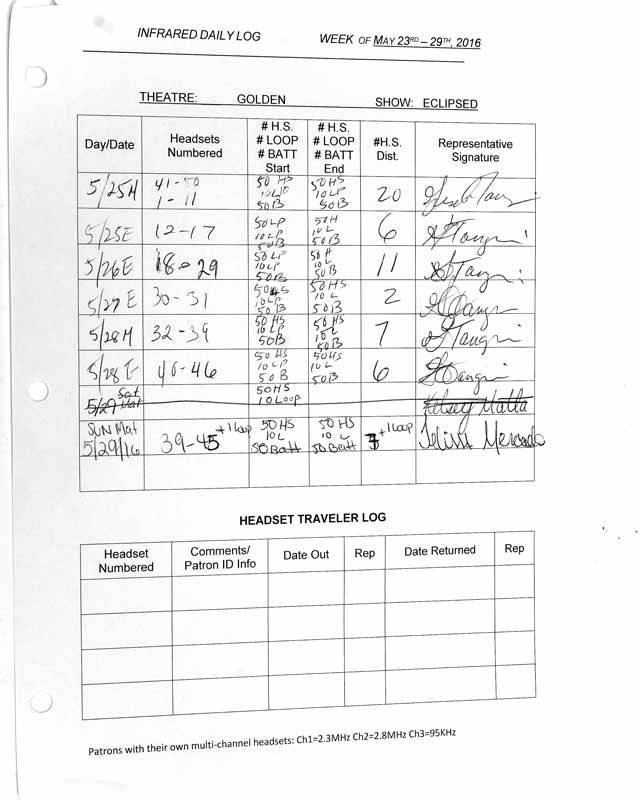 INFRARED DAILY LOG WEEK OF MAY 23RD – 29TH, 2016
THEATRE: GOLDEN SHOW: ECLIPSED
Day/Date Headsets Numbered # H.S. # LOOP # BATT Start # H.S. # LOOP # BATT End #H.S. Dist. Representative Signature
5/25M 41-50 1-11 50 HS 10 LP 50 B 50 HS 10 LP 50 B 20
5/25E 12-17 50 LP 10 LP 50 B 50 H 10 L 50 B 6
5/26E 18-29 50 LP 10 LP 50 B 50 H 10 L 50 B 11
5/27E 30-31 50 HS 10 LP 50 B 50 HS 10 L 50 B 2
5/28M 32-39 50 HS 10 LP 50 B 50 HS 10 L 50 B 7
5/28E 40-46 50 HS 10 LP 50 B 50 HS 10 L 50 B 6
5/29 Sat Mat 50 HS 10 Loop Kelsey Malla
SUN Mat 5/29/16 39-45 +1 loop 50 HS 10 L 50 Batt 50 HS 10 L 50 Batt +1 loop Mercado
HEADSET TRAVELER LOG
Headset Numbered Comments/ Patron ID Info Date Out Rep Date Returned Rep
Patrons with their own multi-channel headsets: Ch1=2.3MHz Ch2=2.8MHz Ch3=95KHz